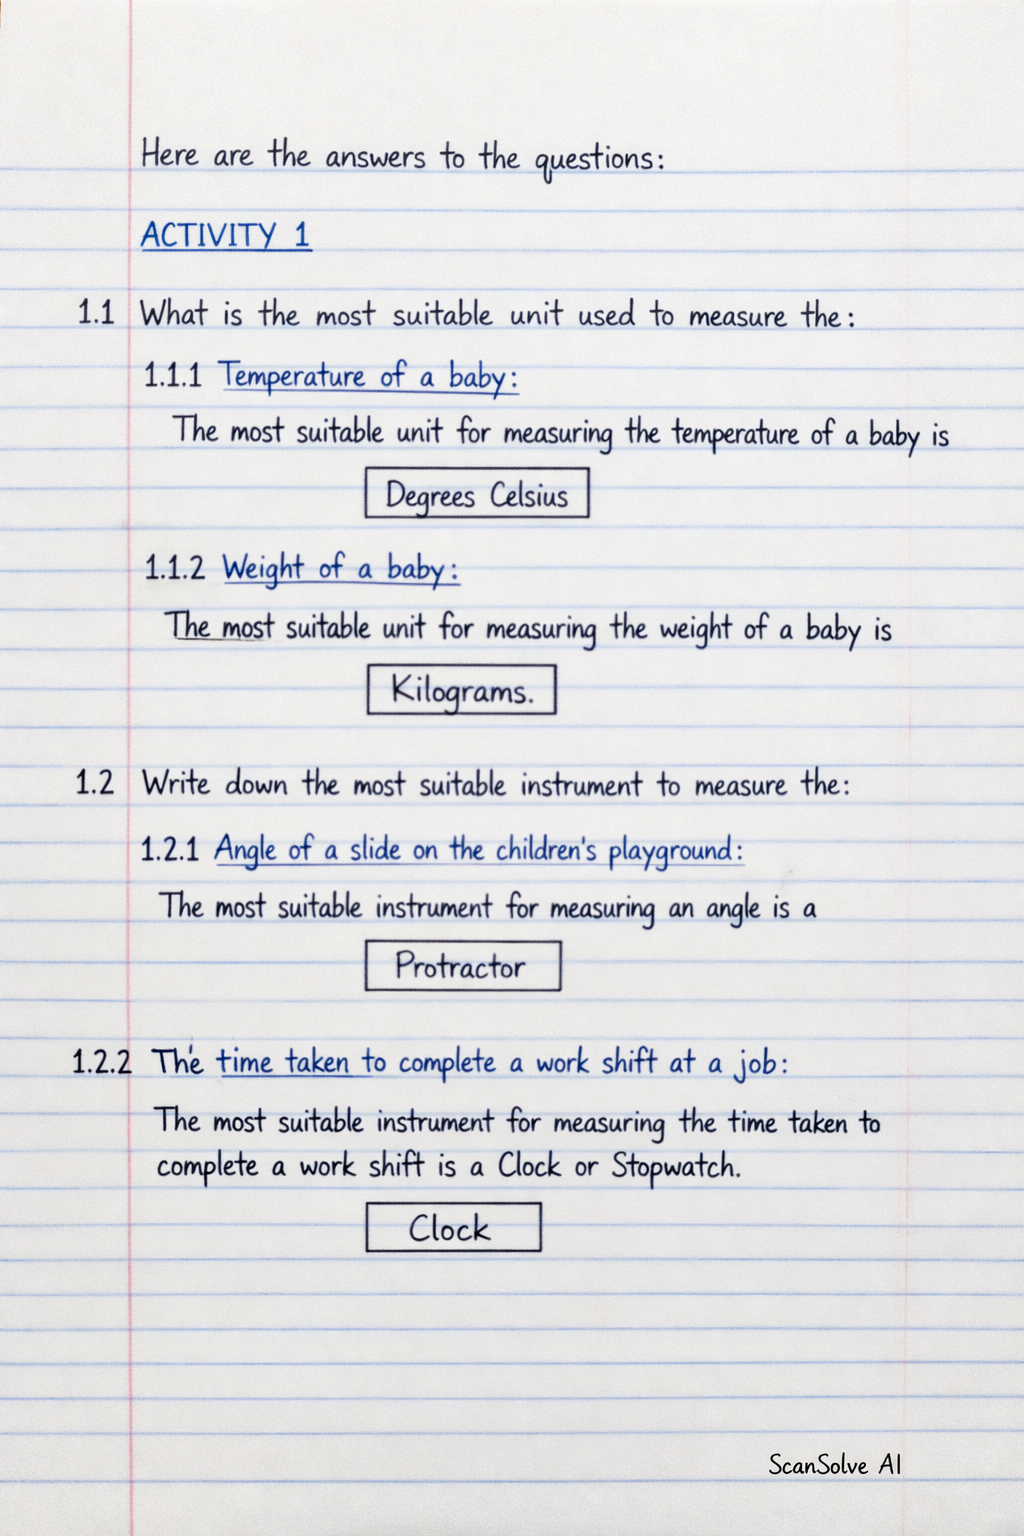 Here are the answers to the questions:
ACTIVITY 1
1.1 What is the most suitable unit used to measure the:
1.1.1 Temperature of a baby:
The most suitable unit for measuring the temperature of a baby is
Degrees Celsius
1.1.2 Weight of a baby:
The most suitable unit for measuring the weight of a baby is
Kilograms.
1.2 Write down the most suitable instrument to measure the:
1.2.1 Angle of a slide on the children's playground:
The most suitable instrument for measuring an angle is a
Protractor
1.2.2 The time taken to complete a work shift at a job:
The most suitable instrument for measuring the time taken to
complete a work shift is a Clock or Stopwatch.
Clock
ScanSolve AI